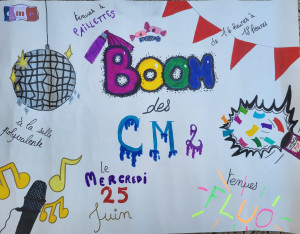 tenues à
PAILLETTES
de 16 heures à
18 heures
BOOM
des
CM2
à la salle
polyvalente
le
MERCREDI
25
Juin
tenues
FLUO